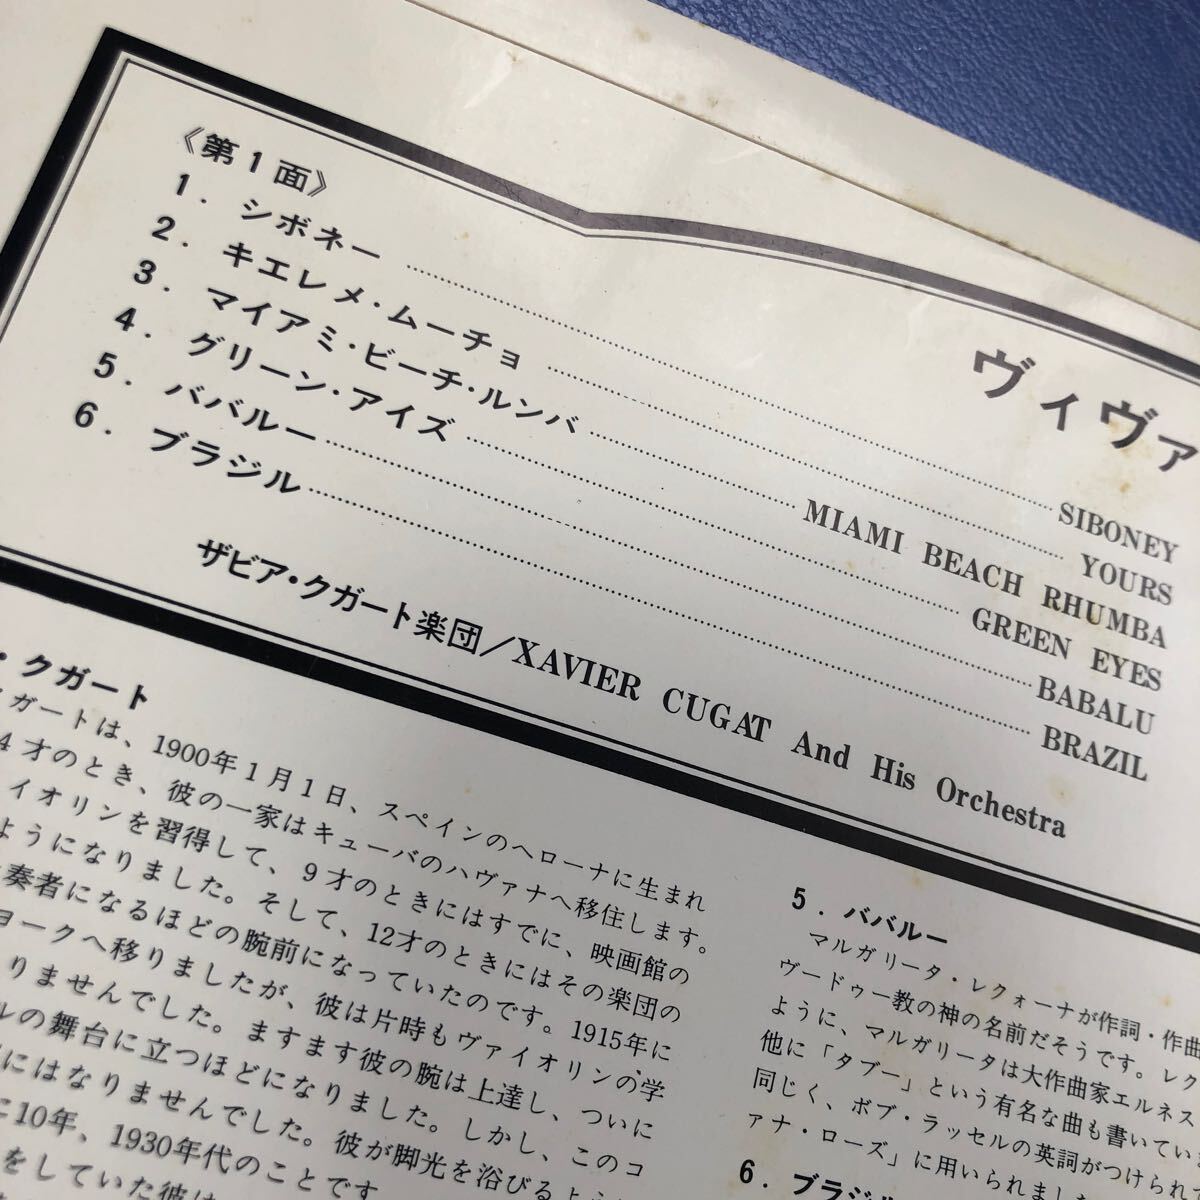 《第1面》
1. シボネー……SIBONEY
2. キエレメ・ムーチョ……YOURS
3. マイアミ・ビーチ・ルンバ……MIAMI BEACH RHUMBA
4. グリーン・アイズ……GREEN EYES
5. ババルー……BABALU
6. ブラジル……BRAZIL
ザビア・クガート楽団/XAVIER CUGAT And His Orchestra
ヴィヴァ
・クガート
ガートは、1900年1月1日、スペインのヘローナに生まれ
4才のとき、彼の一家はキューバのハヴァナへ移住します。
イオリンを習得して、9才のときにはすでに、映画館の
ようになりました。そして、12才のときにはその楽団の
奏者になるほどの腕前になっていたのです。1915年に
ヨークへ移りましたが、彼は片時もヴァイオリンの学
りませんでした。ますます彼の腕は上達し、ついに
ルの舞台に立つほどになりました。しかし、このコ
にはなりませんでした。彼が脚光を浴びるように
に10年、1930年代のことです
をしていた彼は
5. ババルー
マルガリータ・レクォーナが作詞・作曲
ヴードゥー教の神の名前だそうです。レク
ように、マルガリータは大作曲家エルネス
他に「タブー」という有名な曲も書いてい
同じく、ボブ・ラッセルの英詞がつけられ
アナ・ローズ」に用いられました
6. ブラジル